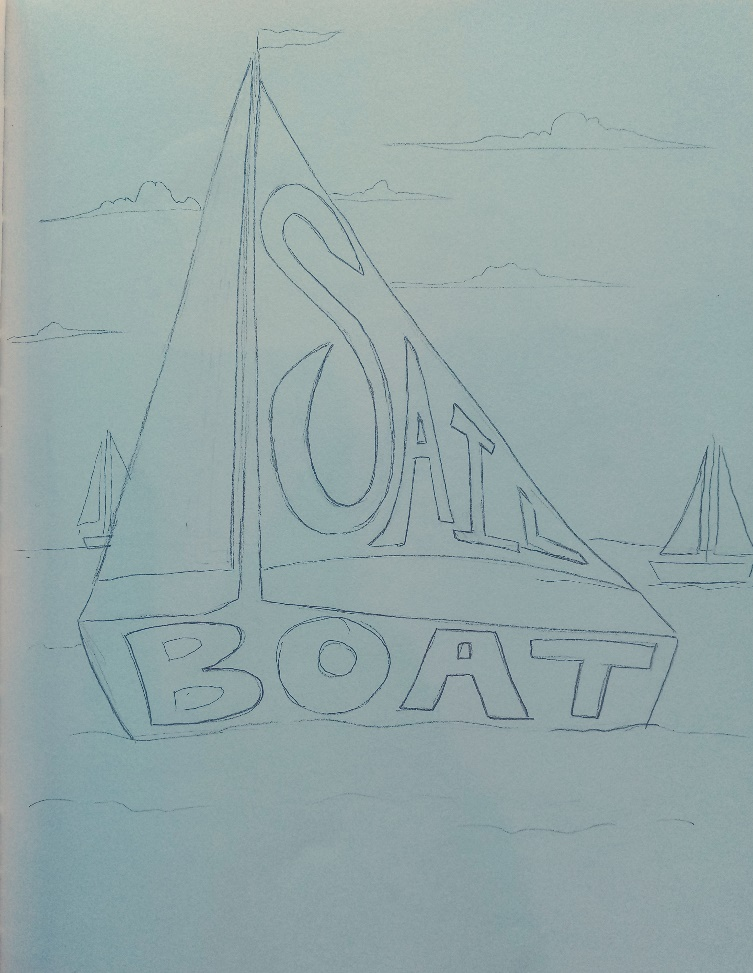 SAIL
BOAT